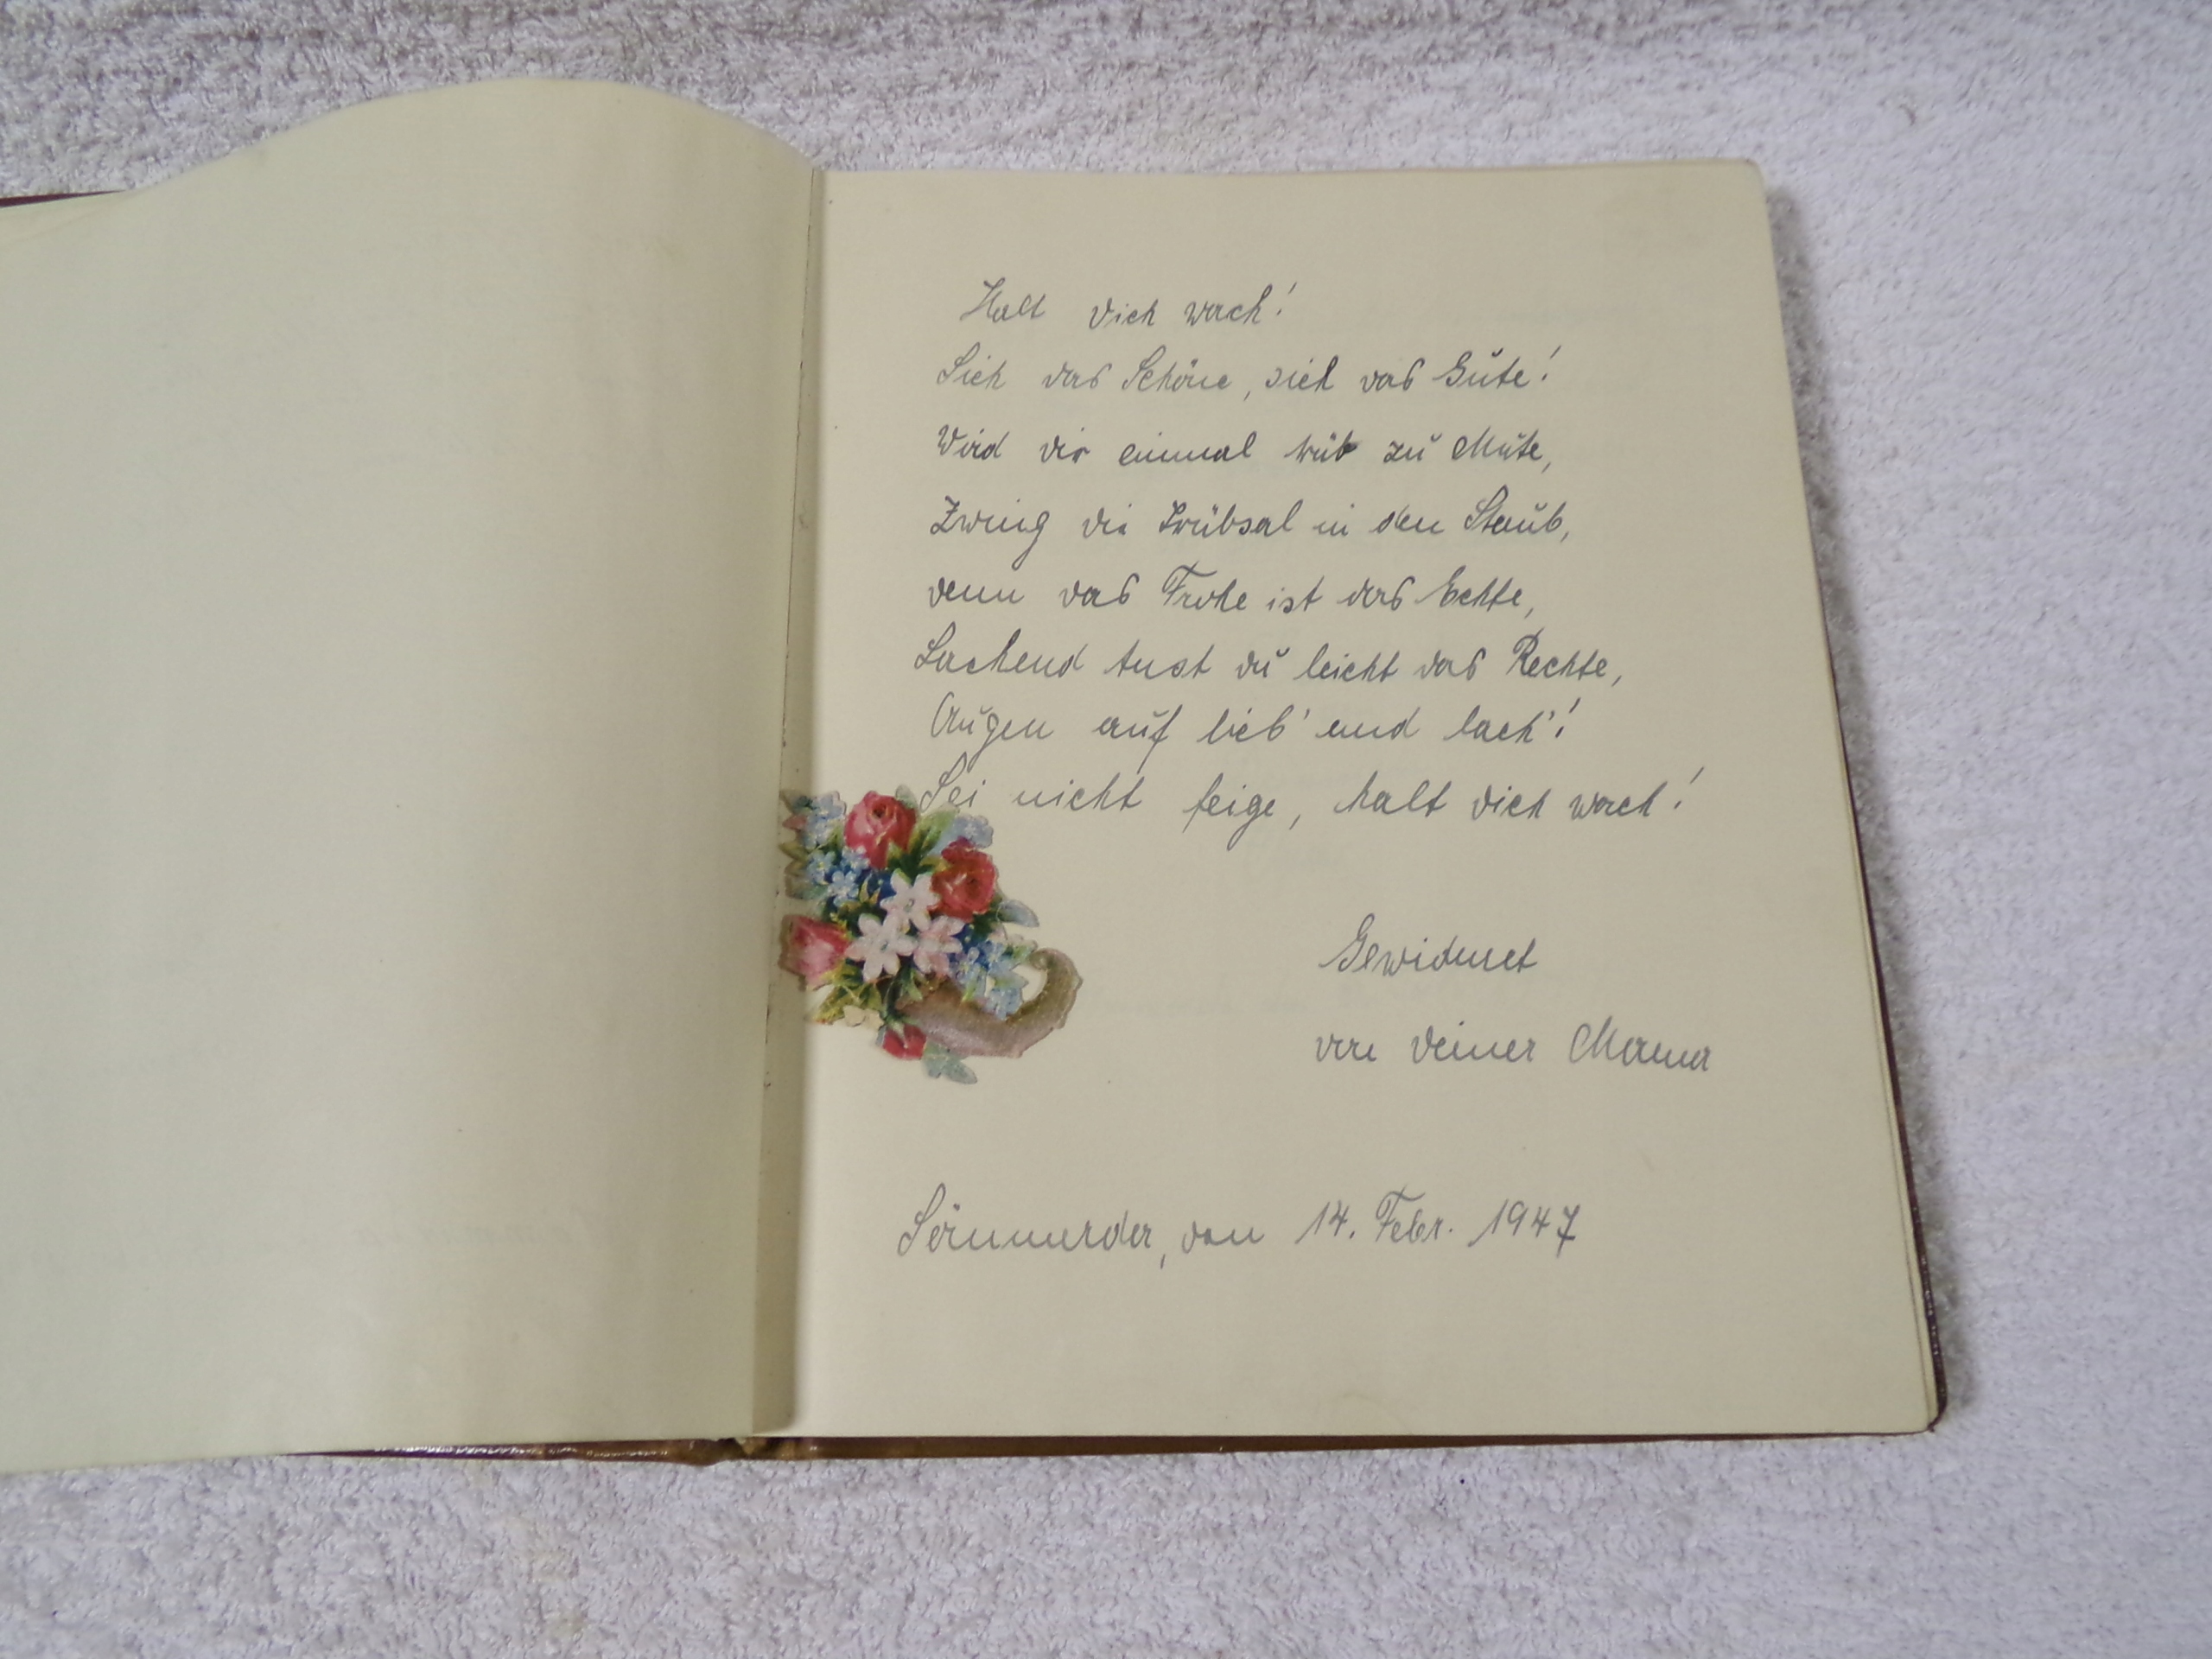 Halt dich wach!
Sieh das Schöne, sieh das Gute!
Wird dir einmal trüb zu Mute,
Zwing die Trübsal in den Staub,
denn das Frohe ist das Echte,
Lachend tust du leicht das Rechte,
Augen auf lieb' und lach'!
Sei nicht feige, halt dich wach!
Gewidmet
von deiner Mama
Sömmerda, den 14. Febr. 1947